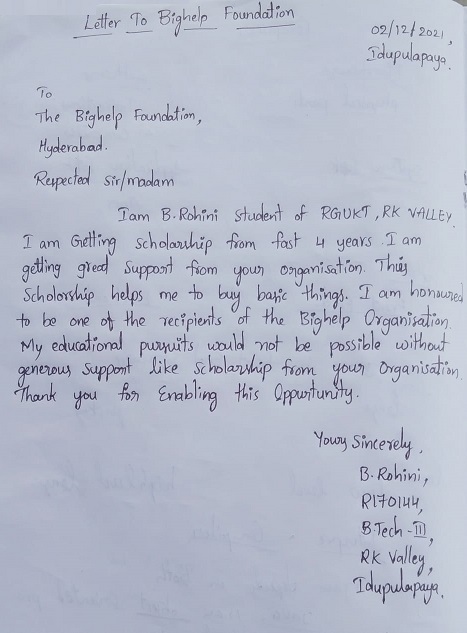 Letter To Bighelp Foundation
02/12/2021,
Idupulapaya.
To
The Bighelp Foundation,
Hyderabad.
Respected sir/madam
I am B. Rohini student of RGUKT, RK VALLEY.
I am Getting scholarship from fast 4 years. I am
getting great support from your organisation. This
Scholorship helps me to buy basic things. I am honoured
to be one of the recipients of the Bighelp Organisation.
My educational pursuits would not be possible without
generous support like scholarship from your Organisation.
Thank you for Enabling this Oppurtunity.
Yours Sincerely,
B. Rohini,
R170144,
B.Tech-III,
RK Valley,
Idupulapaya.